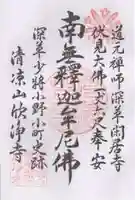 道元禅師深草閑居寺
伏見大佛(丈六)奉安
南無釋迦牟尼佛
深草少将小野小町史跡
清凉山欣浄寺